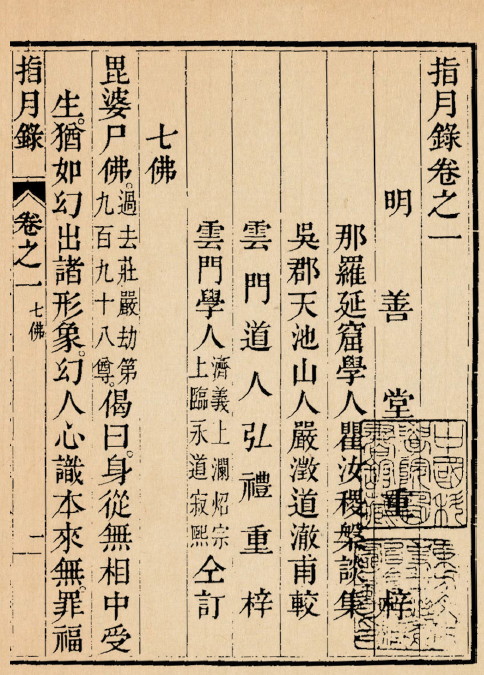 指月錄卷之一
明善堂重梓
那羅延窟學人瞿汝稷槃談集
吳郡天池山人嚴澂道澈甫較
雲門道人弘禮重梓
雲門學人濟義上瀾炤宗上臨永道寂熙仝訂
七佛
毘婆尸佛。過去莊嚴劫第九百九十八尊。偈曰。身從無相中受
生。猶如幻出諸形象。幻人心識本來無。罪福
指月錄 卷之一 七佛 一